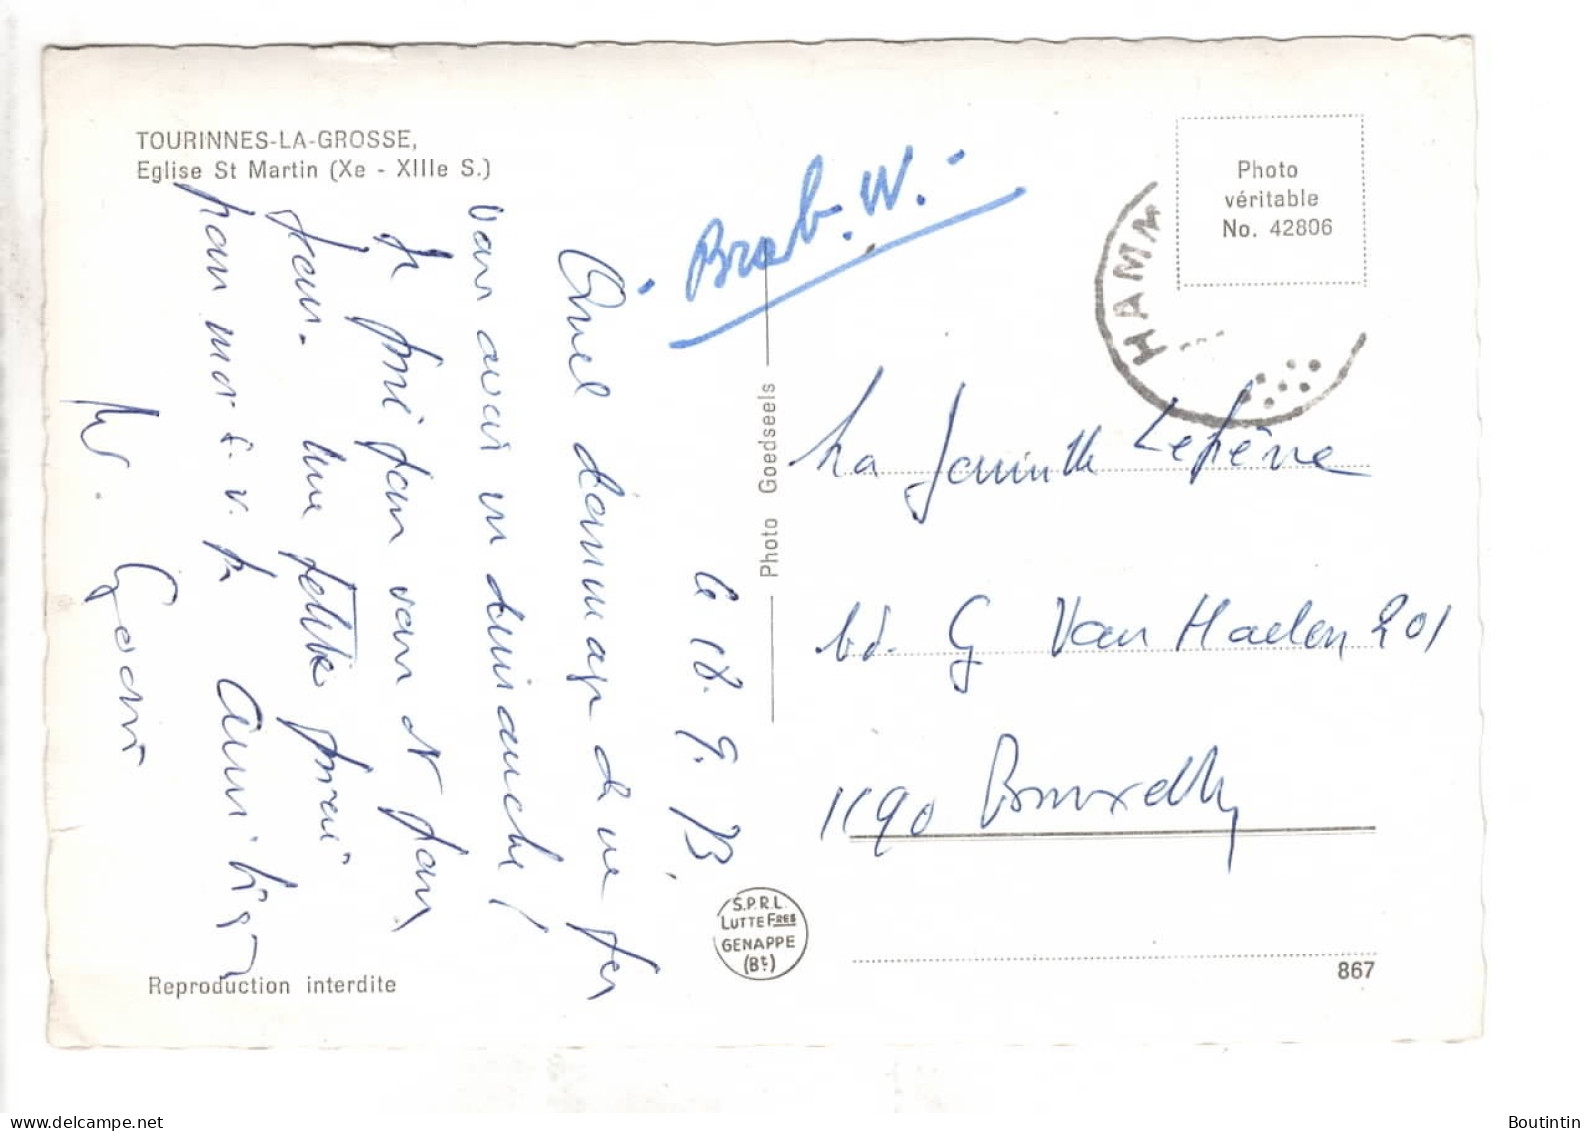 TOURINNES-LA-GROSSE,
Eglise St Martin (Xe - XIIIe S.)
Brab. W.
Photo
véritable
No. 42806
HAMM
le 18.9.73,
Quel dommage de ne pas
vous avoir un dimanche!
Je prie pour vous et pour
Jean. Une petite prière
pour moi s.v.p.
Godin
Photo Goedseels
La famille Lefèvre
bd. G Van Haelen 201
1190 Bruxelles
S.P.R.L.
LUTTE FRES
GENAPPE
(Bt.)
Reproduction interdite
867
Boutintin